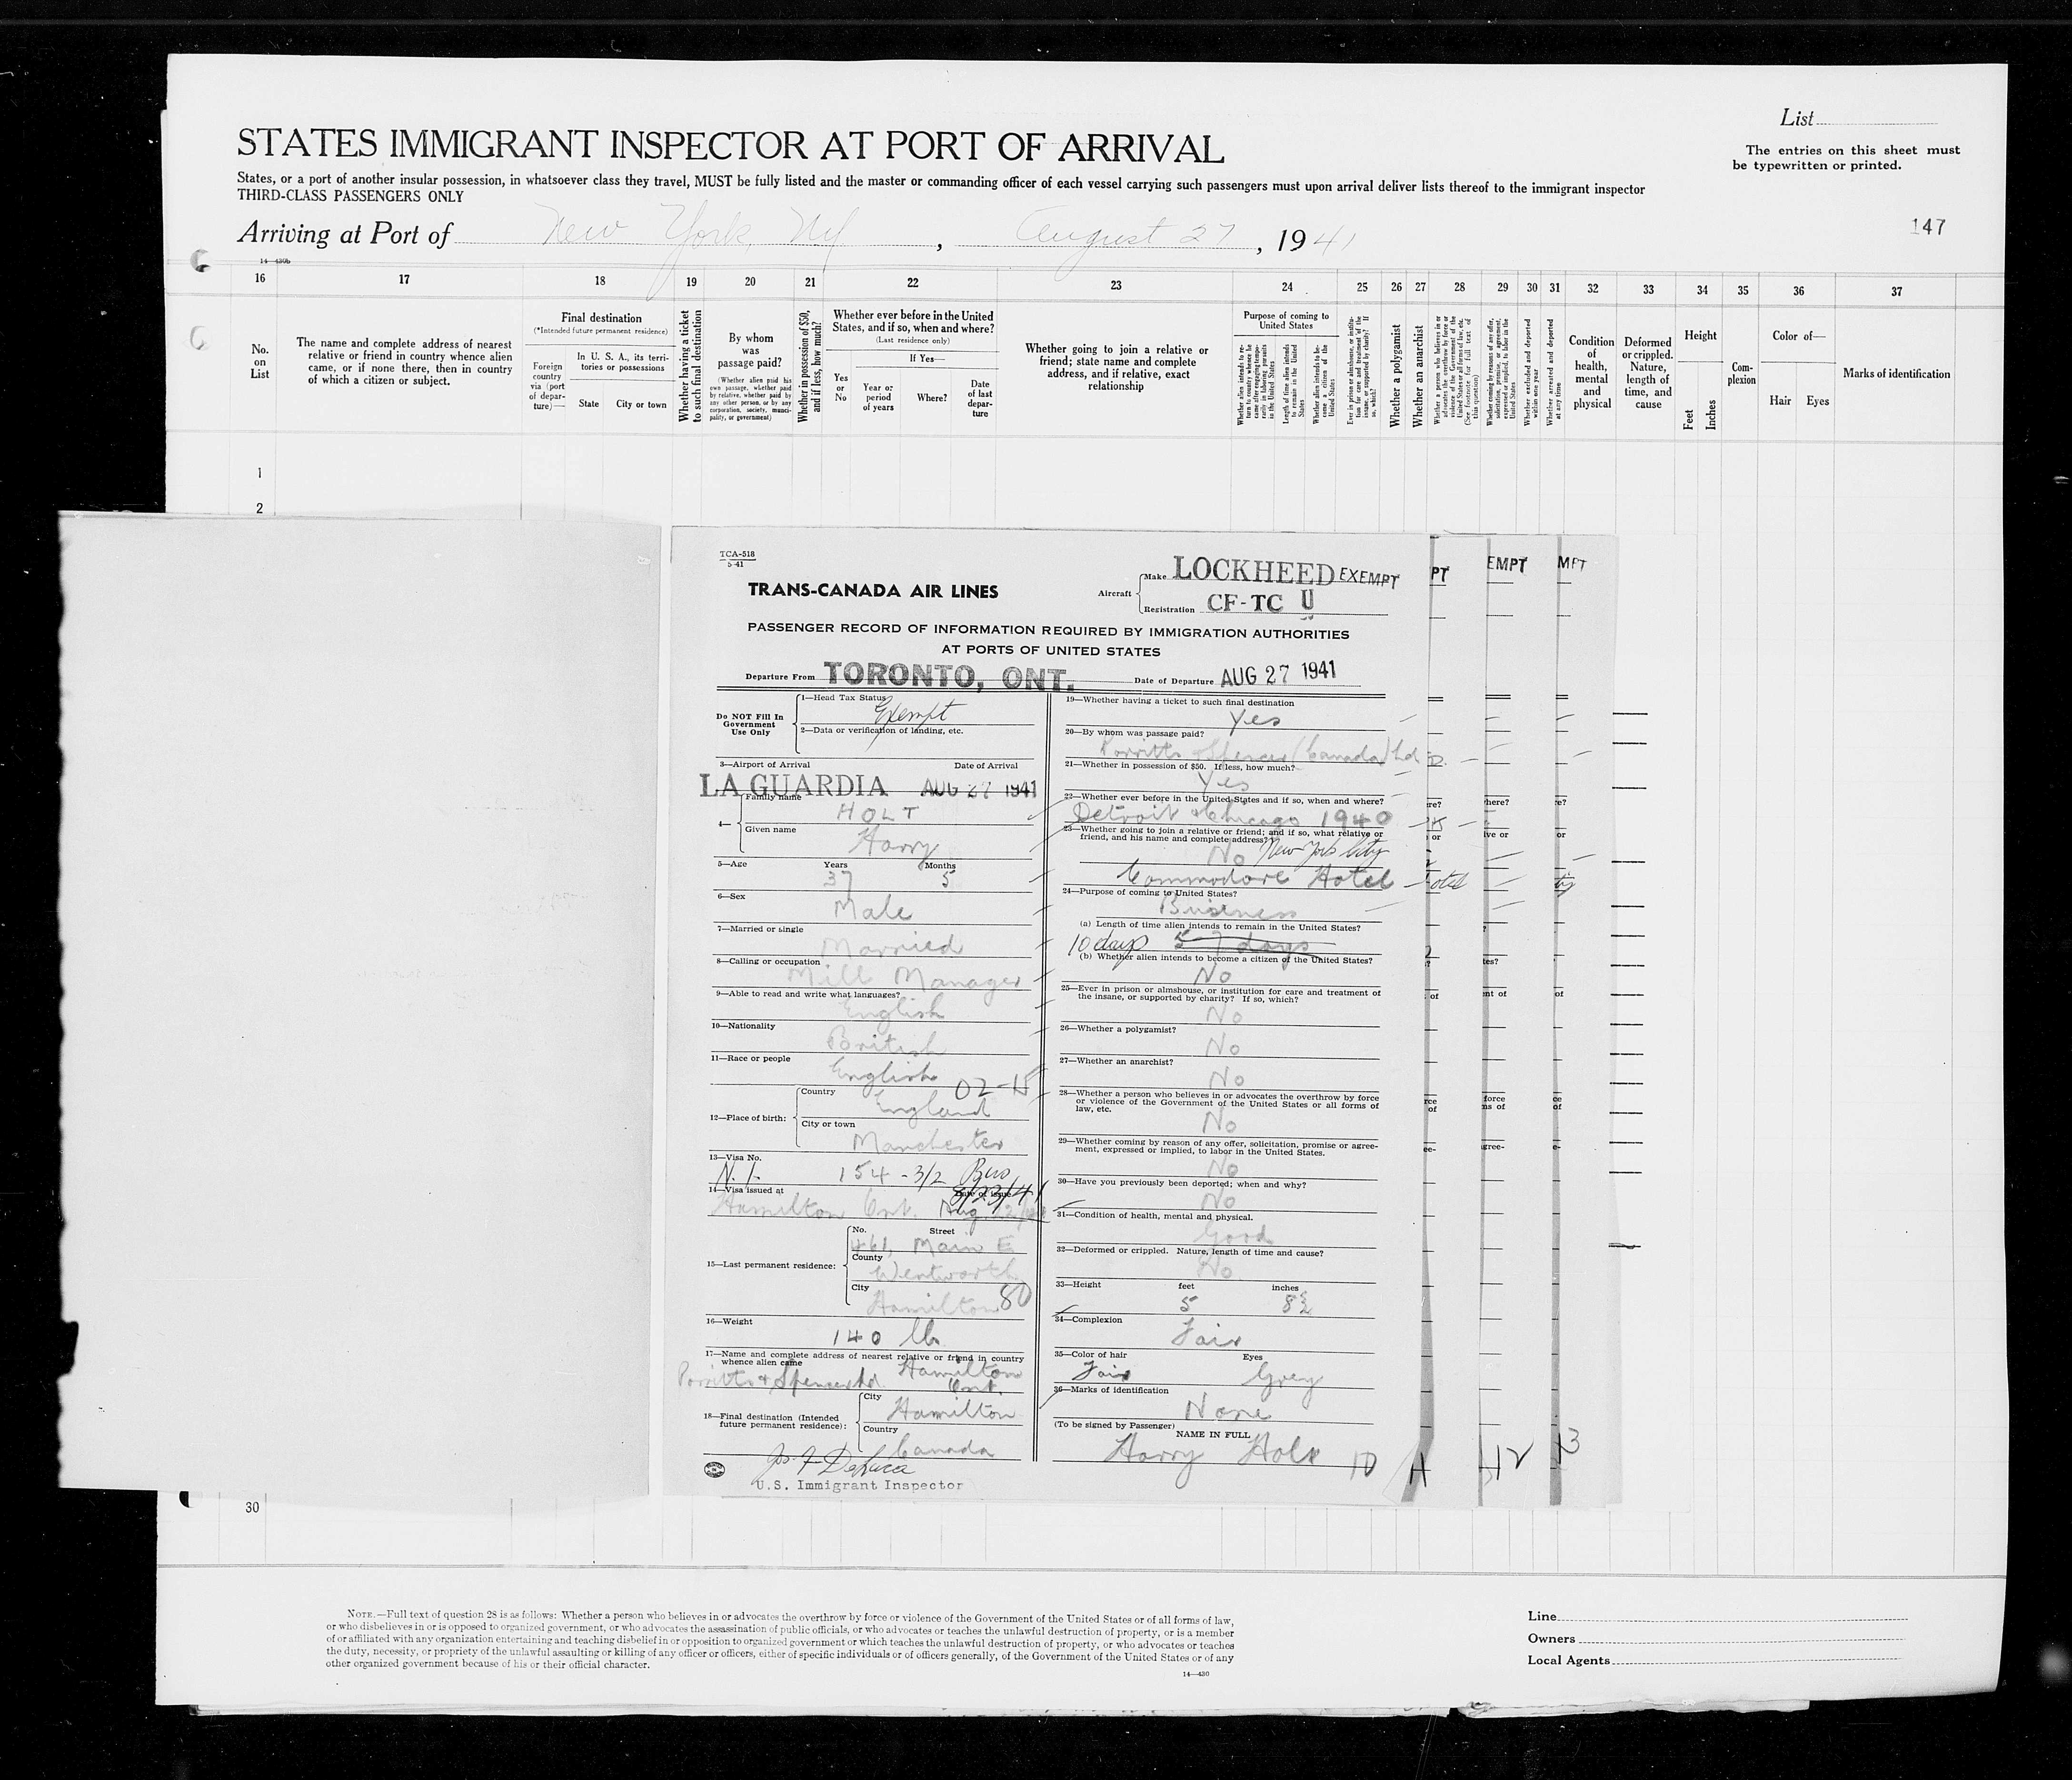 List
STATES IMMIGRANT INSPECTOR AT PORT OF ARRIVAL
The entries on this sheet must
be typewritten or printed.
States, or a port of another insular possession, in whatsoever class they travel, MUST be fully listed and the master or commanding officer of each vessel carrying such passengers must upon arrival deliver lists thereof to the immigrant inspector
THIRD-CLASS PASSENGERS ONLY
Arriving at Port of New York, NY, August 27, 1941
147
14—430b
16 17 18 19 20 21 22 23 24 25 26 27 28 29 30 31 32 33 34 35 36 37
No. on List
The name and complete address of nearest
relative or friend in country whence alien
came, or if none there, then in country
of which a citizen or subject.
Final destination
(*Intended future permanent residence)
Foreign country via (port of departure)—
In U. S. A., its territories or possessions
State City or town
Whether having a ticket to such final destination
By whom was passage paid?
(Whether alien paid his own passage, whether paid by relative, whether paid by any other person, or by any corporation, society, municipality, or government)
Whether in possession of $50, and if less, how much?
Whether ever before in the United
States, and if so, when and where?
(Last residence only)
If Yes—
Yes or No
Year or period of years
Where?
Date of last departure
Whether going to join a relative or
friend; state name and complete
address, and if relative, exact
relationship
Purpose of coming to
United States
Length of time alien intends to remain in the United States
Whether alien intends to become a citizen of the United States
Whether a polygamist
Whether an anarchist
Whether excluded and deported within one year
Whether arrested and deported at any time
Condition of health, mental and physical
Deformed or crippled. Nature, length of time, and cause
Height
Feet Inches
Complexion
Color of—
Hair Eyes
Marks of identification
1
2
TCA-518
5-41
TRANS-CANADA AIR LINES
Aircraft
Make LOCKHEED EXEMPT
Registration CF-TC U
PT
EMPT
MPT
PASSENGER RECORD OF INFORMATION REQUIRED BY IMMIGRATION AUTHORITIES
AT PORTS OF UNITED STATES
Departure From TORONTO, ONT. Date of Departure AUG 27 1941
Do NOT Fill In
Government
Use Only
1—Head Tax Status
Exempt
2—Data or verification of landing, etc.
3—Airport of Arrival Date of Arrival
LA GUARDIA AUG 27 1941
4— Family name
HOLT
Given name
Harry
5—Age Years Months
37 5
6—Sex
Male
7—Married or single
Married
8—Calling or occupation
Mill Manager
9—Able to read and write what languages?
English
10—Nationality
British
11—Race or people
English 02-15
12—Place of birth: Country
England
City or town
Manchester
13—Visa No.
N.I. 154-3/2 Bus
14—Visa issued at Date of issue
8/23/41
Hamilton Ont. Aug.
15—Last permanent residence:
No. Street
461, Main E
County
Wentworth
City
Hamilton 80
16—Weight
140 lb
17—Name and complete address of nearest relative or friend in country
whence alien came
Porritts & Spencer Ltd. Hamilton
Ont.
18—Final destination (Intended
future permanent residence):
City
Hamilton
Country
Canada
Jos. F. DeLuca
U.S. Immigrant Inspector
19—Whether having a ticket to such final destination
Yes
20—By whom was passage paid?
Porritts Spencer (Canada) Ltd
21—Whether in possession of $50. If less, how much?
Yes
22—Whether ever before in the United States and if so, when and where?
Detroit Chicago 1940
23—Whether going to join a relative or friend; and if so, what relative or
friend, and his name and complete address?
No New York City
Commodore Hotel
24—Purpose of coming to United States?
Business
(a) Length of time alien intends to remain in the United States?
10 days 5-7 days
(b) Whether alien intends to become a citizen of the United States?
No
25—Ever in prison or almshouse, or institution for care and treatment of
the insane, or supported by charity? If so, which?
No
26—Whether a polygamist?
No
27—Whether an anarchist?
No
28—Whether a person who believes in or advocates the overthrow by force
or violence of the Government of the United States or all forms of
law, etc.
No
29—Whether coming by reason of any offer, solicitation, promise or agree-
ment, expressed or implied, to labor in the United States.
No
30—Have you previously been deported; when and why?
No
31—Condition of health, mental and physical.
Good
32—Deformed or crippled. Nature, length of time and cause?
No
33—Height feet inches
5 8½
34—Complexion
Fair
35—Color of hair Eyes
Fair Grey
36—Marks of identification
None
(To be signed by Passenger)
NAME IN FULL
Harry Holt 10
30
NOTE.—Full text of question 28 is as follows: Whether a person who believes in or advocates the overthrow by force or violence of the Government of the United States or of all forms of law,
or who disbelieves in or is opposed to organized government, or who advocates the assassination of public officials, or who advocates or teaches the unlawful destruction of property, or is a member
of or affiliated with any organization entertaining and teaching disbelief in or opposition to organized government or which teaches the unlawful destruction of property, or who advocates or teaches
the duty, necessity, or propriety of the unlawful assaulting or killing of any officer or officers, either of specific individuals or of officers generally, of the Government of the United States or of any
other organized government because of his or their official character.
14—430
Line
Owners
Local Agents